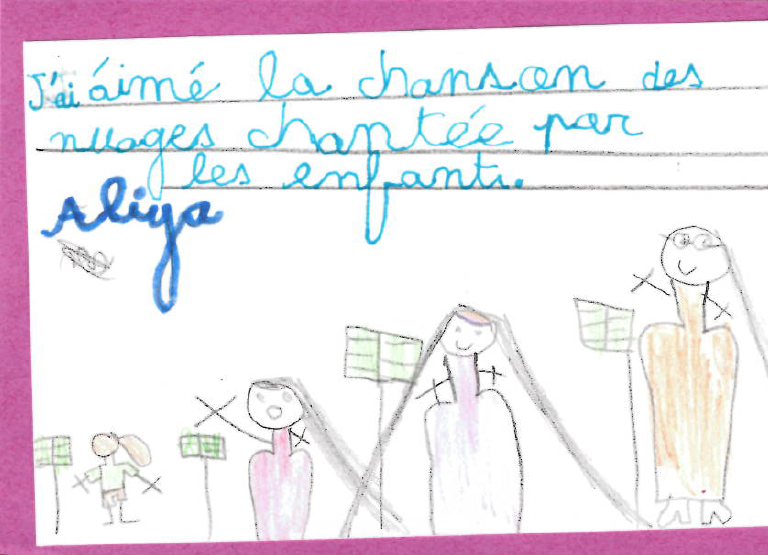 J'ai aimé la chanson des
nuages chantée par
les enfants.
Aliya